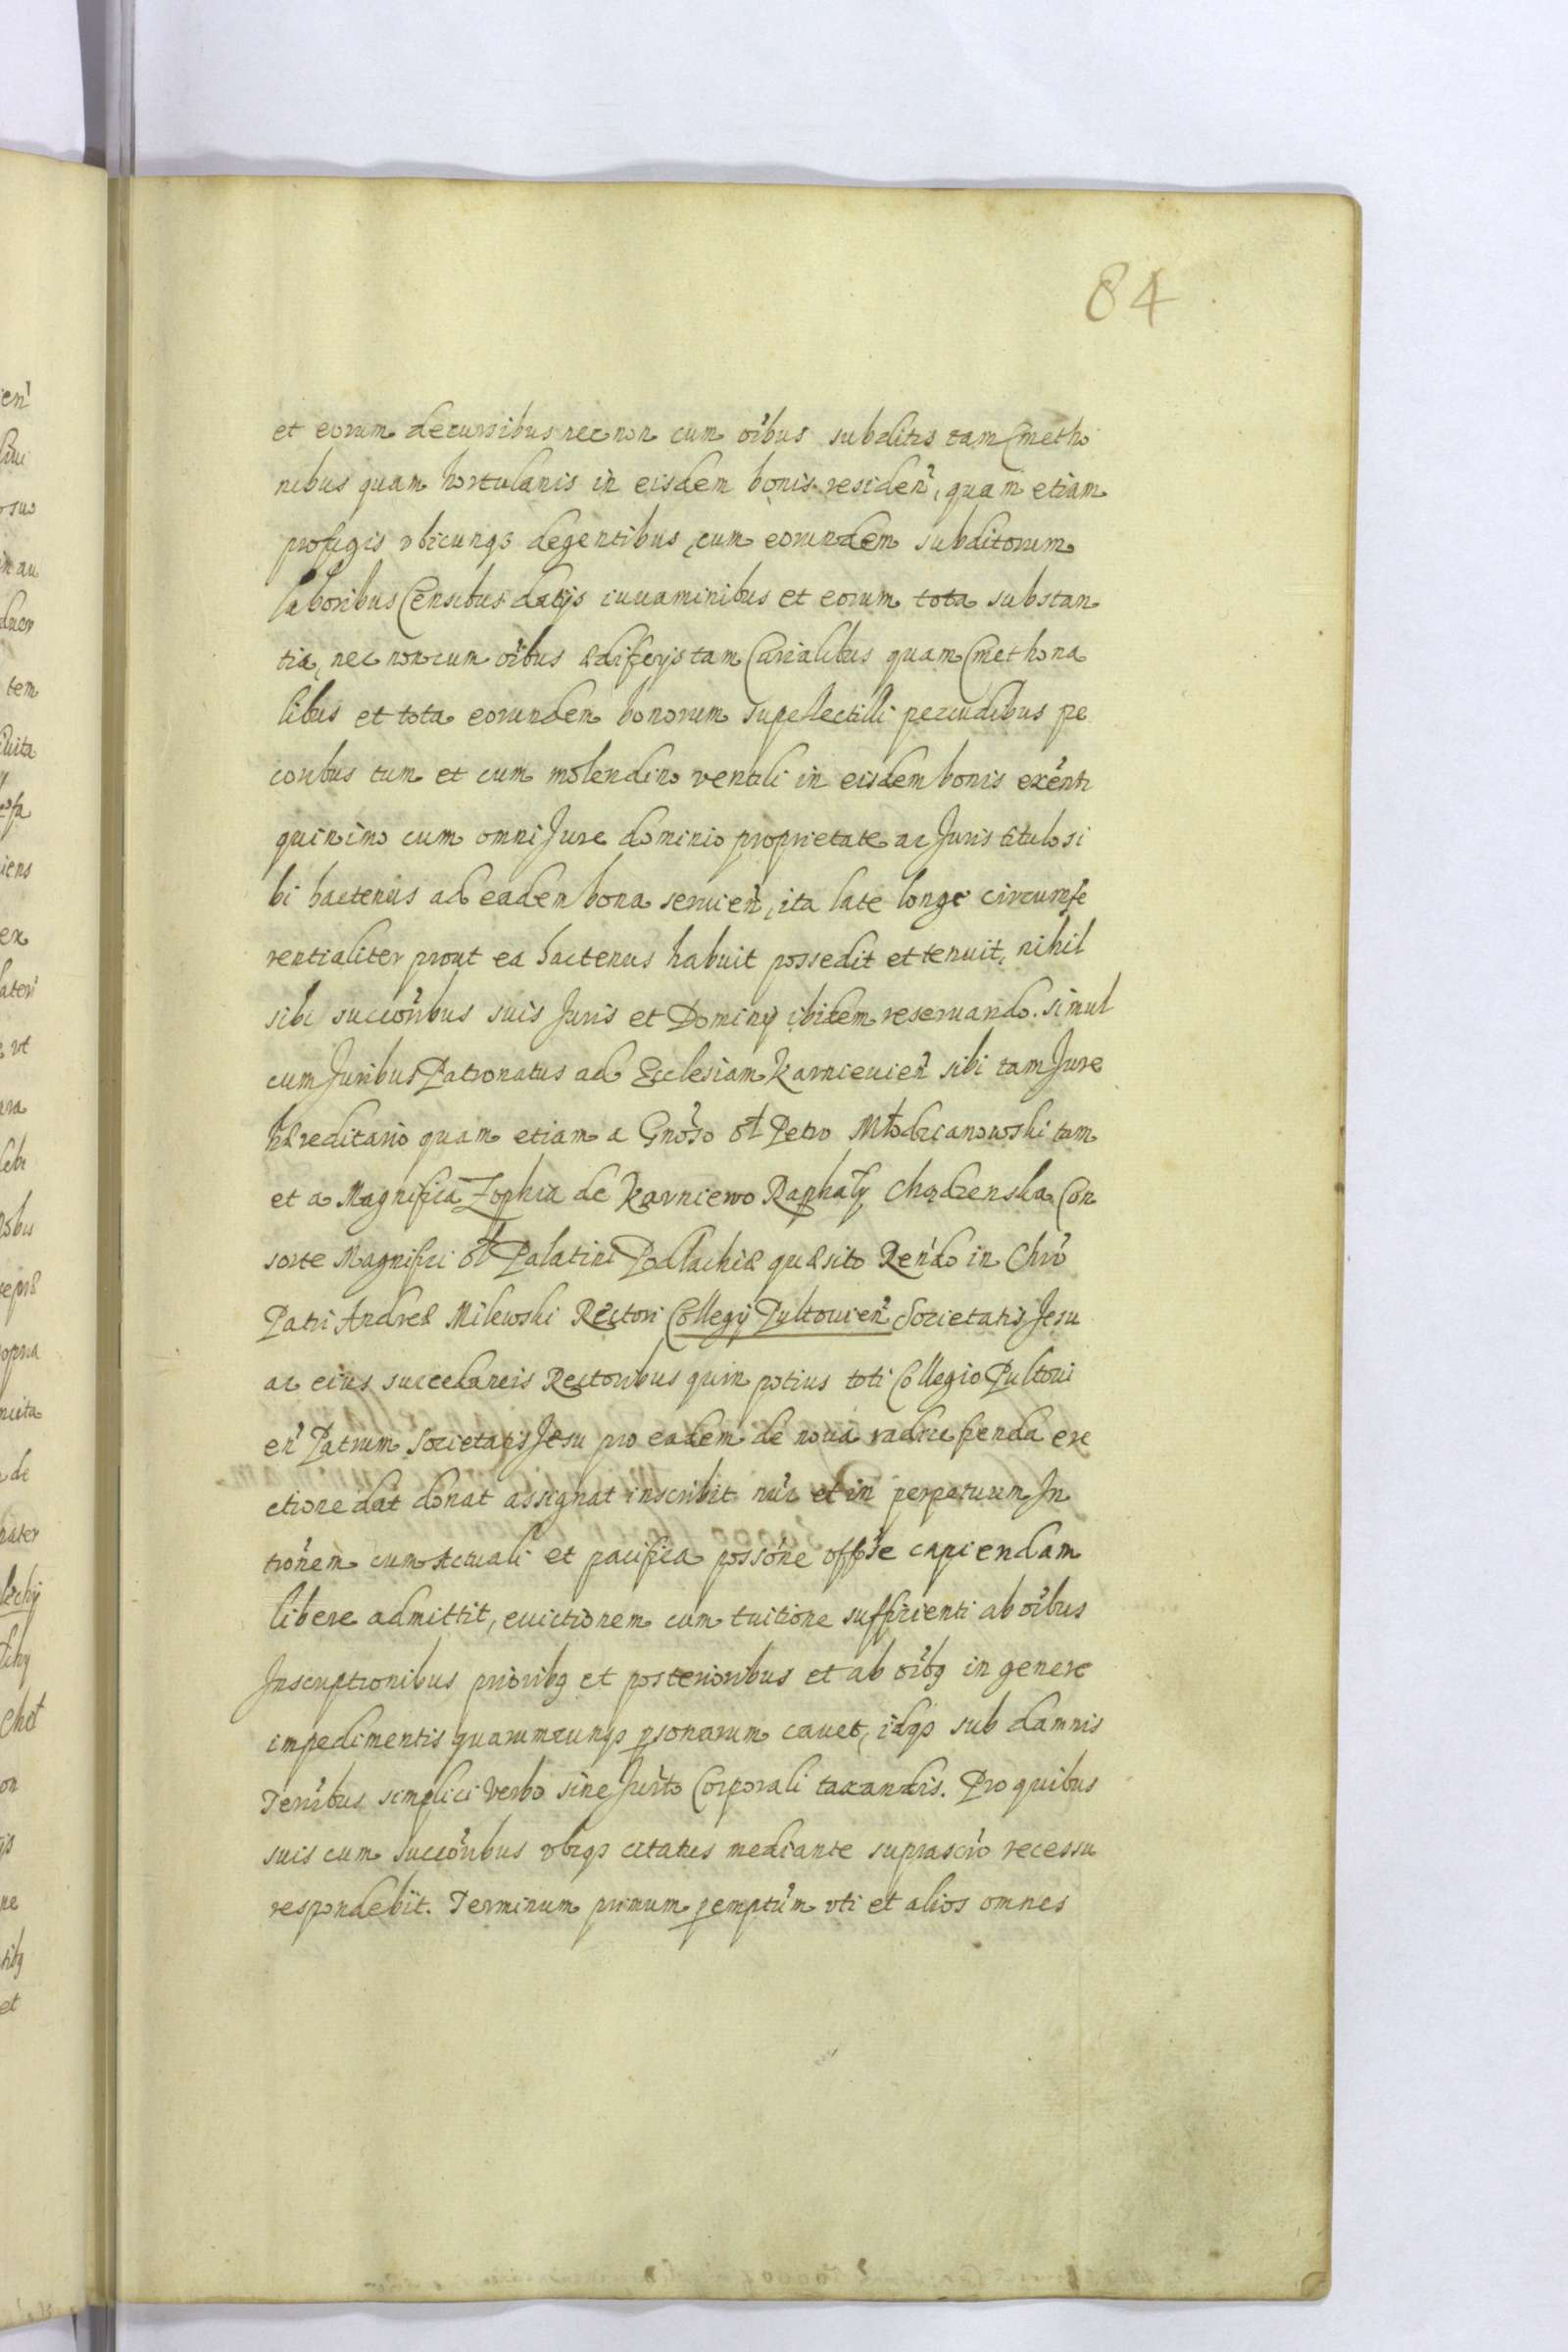 84
et eorum decursibus necnon cum oībus subditis tam Cmetho
nibus quam hortulanis in eisdem bonis residen̄, quam etiam
profugis vbicunqȝ degentibus, cum eorundem subditorum
laboribus Censibus datijs iuuaminibus et eorum tota substan
tia, nec non cum oībus ædificijs tam Curialibus quam Cmethona
libus et tota eorundem bonorum supellectilli pecudibus pe
coribus tum et cum molendino ventili in eisdem bonis exēnti
quinimo cum omni Jure dominio proprietate ac Juris titulo si
bi hactenus ad eadem bona seruien̄, ita late longe circumfe
rentialiter prout ea hactenus habuit possedit et tenuit, nihil
sibi succōribus suis Juris et Dominij ibidem reseruando. simul
cum Juribus Patronatus ad Ecclesiam Karnieuien̄ sibi tam Jure
hæreditario quam etiam a Gnōso ol̄ Petro Młodzianowski tam
et a Magnifica Zophia de Karniewo Raphaelȳ Chądzenska Con
sorte Magnifici ol̄ Palatini Podlachiæ quæsito Ren̄do in Chrō
Patri Andreæ Milewski Rectori Collegij Pultouien̄ Societatis Jesu
ac eius succedaneis Rectoribus quin potius toti Collegio Pultoui
en̄ Patrum Societatis Jesu pro eadem de noua radice fienda ere
ctione dat donat assignat inscribit nūc et in perpetuum In
trōnem cum Actuali et pacifica possōne offōse capiendam
libere admittit, euictionem cum tuitione sufficienti ab oībus
Inscriptionibus prioribꝫ et posterioribus et ab oībꝫ in genere
impedimentis quarumcunqȝ ꝑsonarum cauet, idqȝ sub damnis
Terrībus simplici Verbo sine Jurto Corporali taxandis. Pro quibus
suis cum succōribus vbiqȝ citatus mediante suprascrō recessu
respondebit. Terminum primum ꝑemptūm vti et alios omnes